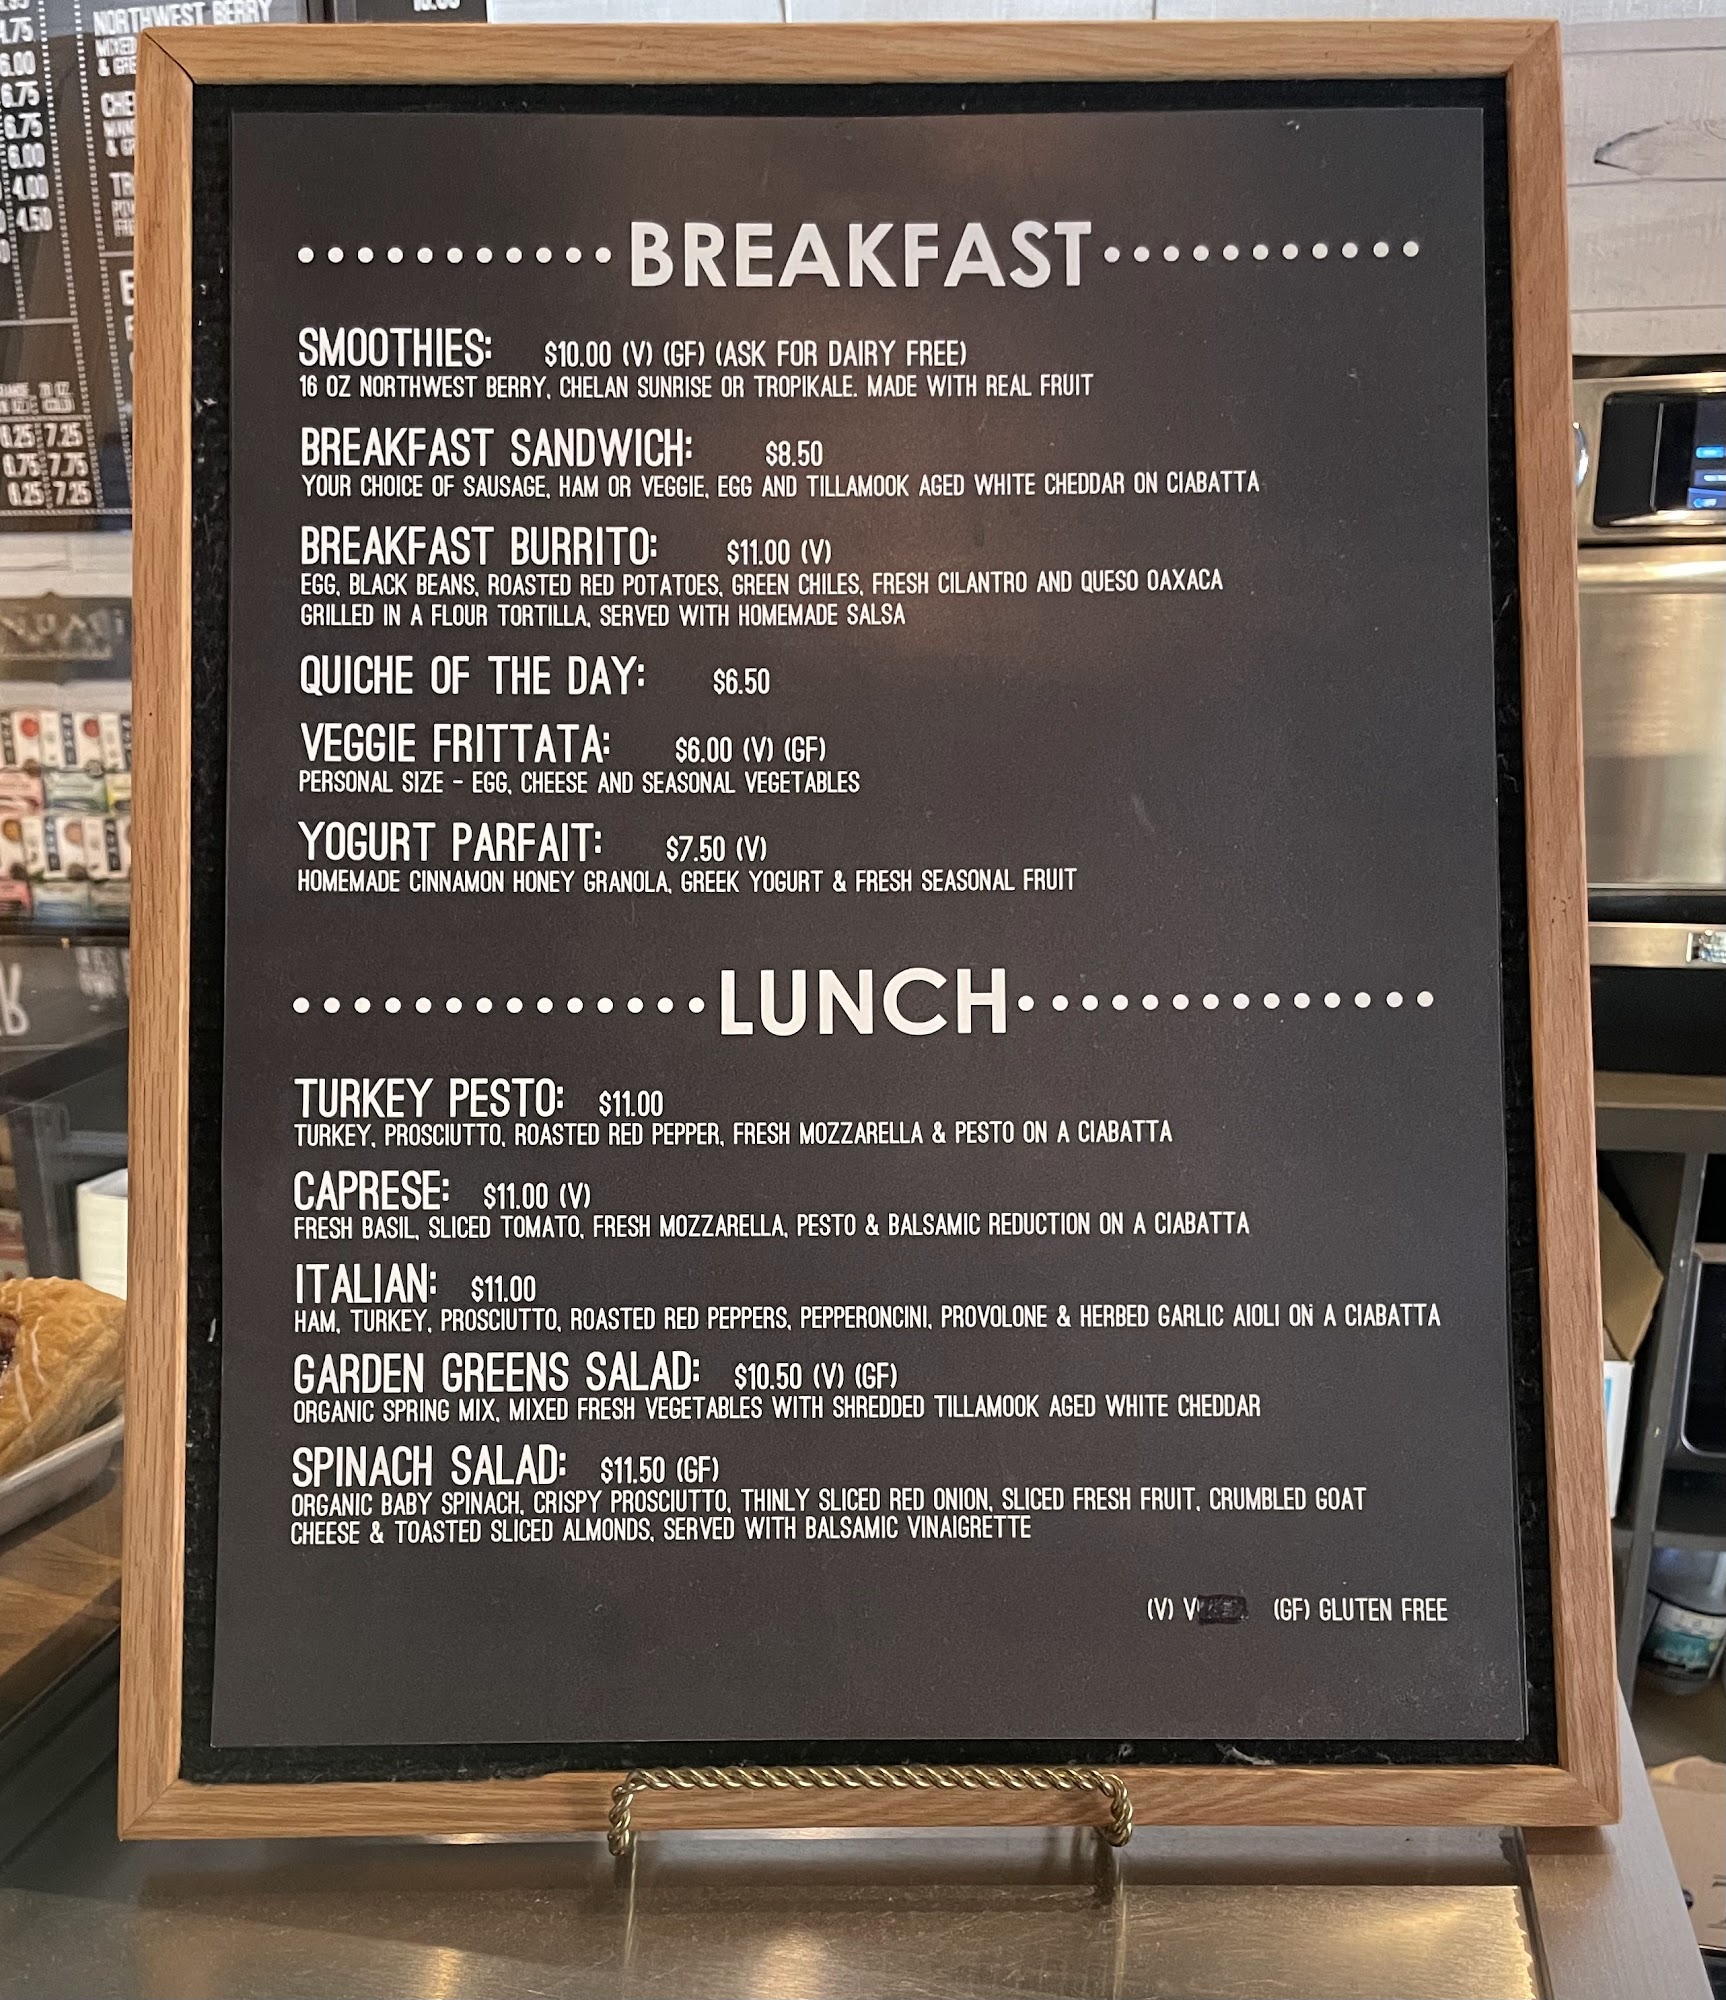 NORTHWEST BERRY
4.75
6.00
6.75
6.75
6.00
4.00
4.50
7.25
7.75
7.25
BREAKFAST
SMOOTHIES: $10.00 (V) (GF) (ASK FOR DAIRY FREE)
16 OZ NORTHWEST BERRY, CHELAN SUNRISE OR TROPIKALE. MADE WITH REAL FRUIT
BREAKFAST SANDWICH: $8.50
YOUR CHOICE OF SAUSAGE, HAM OR VEGGIE, EGG AND TILLAMOOK AGED WHITE CHEDDAR ON CIABATTA
BREAKFAST BURRITO: $11.00 (V)
EGG, BLACK BEANS, ROASTED RED POTATOES, GREEN CHILES, FRESH CILANTRO AND QUESO OAXACA
GRILLED IN A FLOUR TORTILLA, SERVED WITH HOMEMADE SALSA
QUICHE OF THE DAY: $6.50
VEGGIE FRITTATA: $6.00 (V) (GF)
PERSONAL SIZE - EGG, CHEESE AND SEASONAL VEGETABLES
YOGURT PARFAIT: $7.50 (V)
HOMEMADE CINNAMON HONEY GRANOLA, GREEK YOGURT & FRESH SEASONAL FRUIT
LUNCH
TURKEY PESTO: $11.00
TURKEY, PROSCIUTTO, ROASTED RED PEPPER, FRESH MOZZARELLA & PESTO ON A CIABATTA
CAPRESE: $11.00 (V)
FRESH BASIL, SLICED TOMATO, FRESH MOZZARELLA, PESTO & BALSAMIC REDUCTION ON A CIABATTA
ITALIAN: $11.00
HAM, TURKEY, PROSCIUTTO, ROASTED RED PEPPERS, PEPPERONCINI, PROVOLONE & HERBED GARLIC AIOLI ON A CIABATTA
GARDEN GREENS SALAD: $10.50 (V) (GF)
ORGANIC SPRING MIX, MIXED FRESH VEGETABLES WITH SHREDDED TILLAMOOK AGED WHITE CHEDDAR
SPINACH SALAD: $11.50 (GF)
ORGANIC BABY SPINACH, CRISPY PROSCIUTTO, THINLY SLICED RED ONION, SLICED FRESH FRUIT, CRUMBLED GOAT
CHEESE & TOASTED SLICED ALMONDS, SERVED WITH BALSAMIC VINAIGRETTE
(V) V (GF) GLUTEN FREE